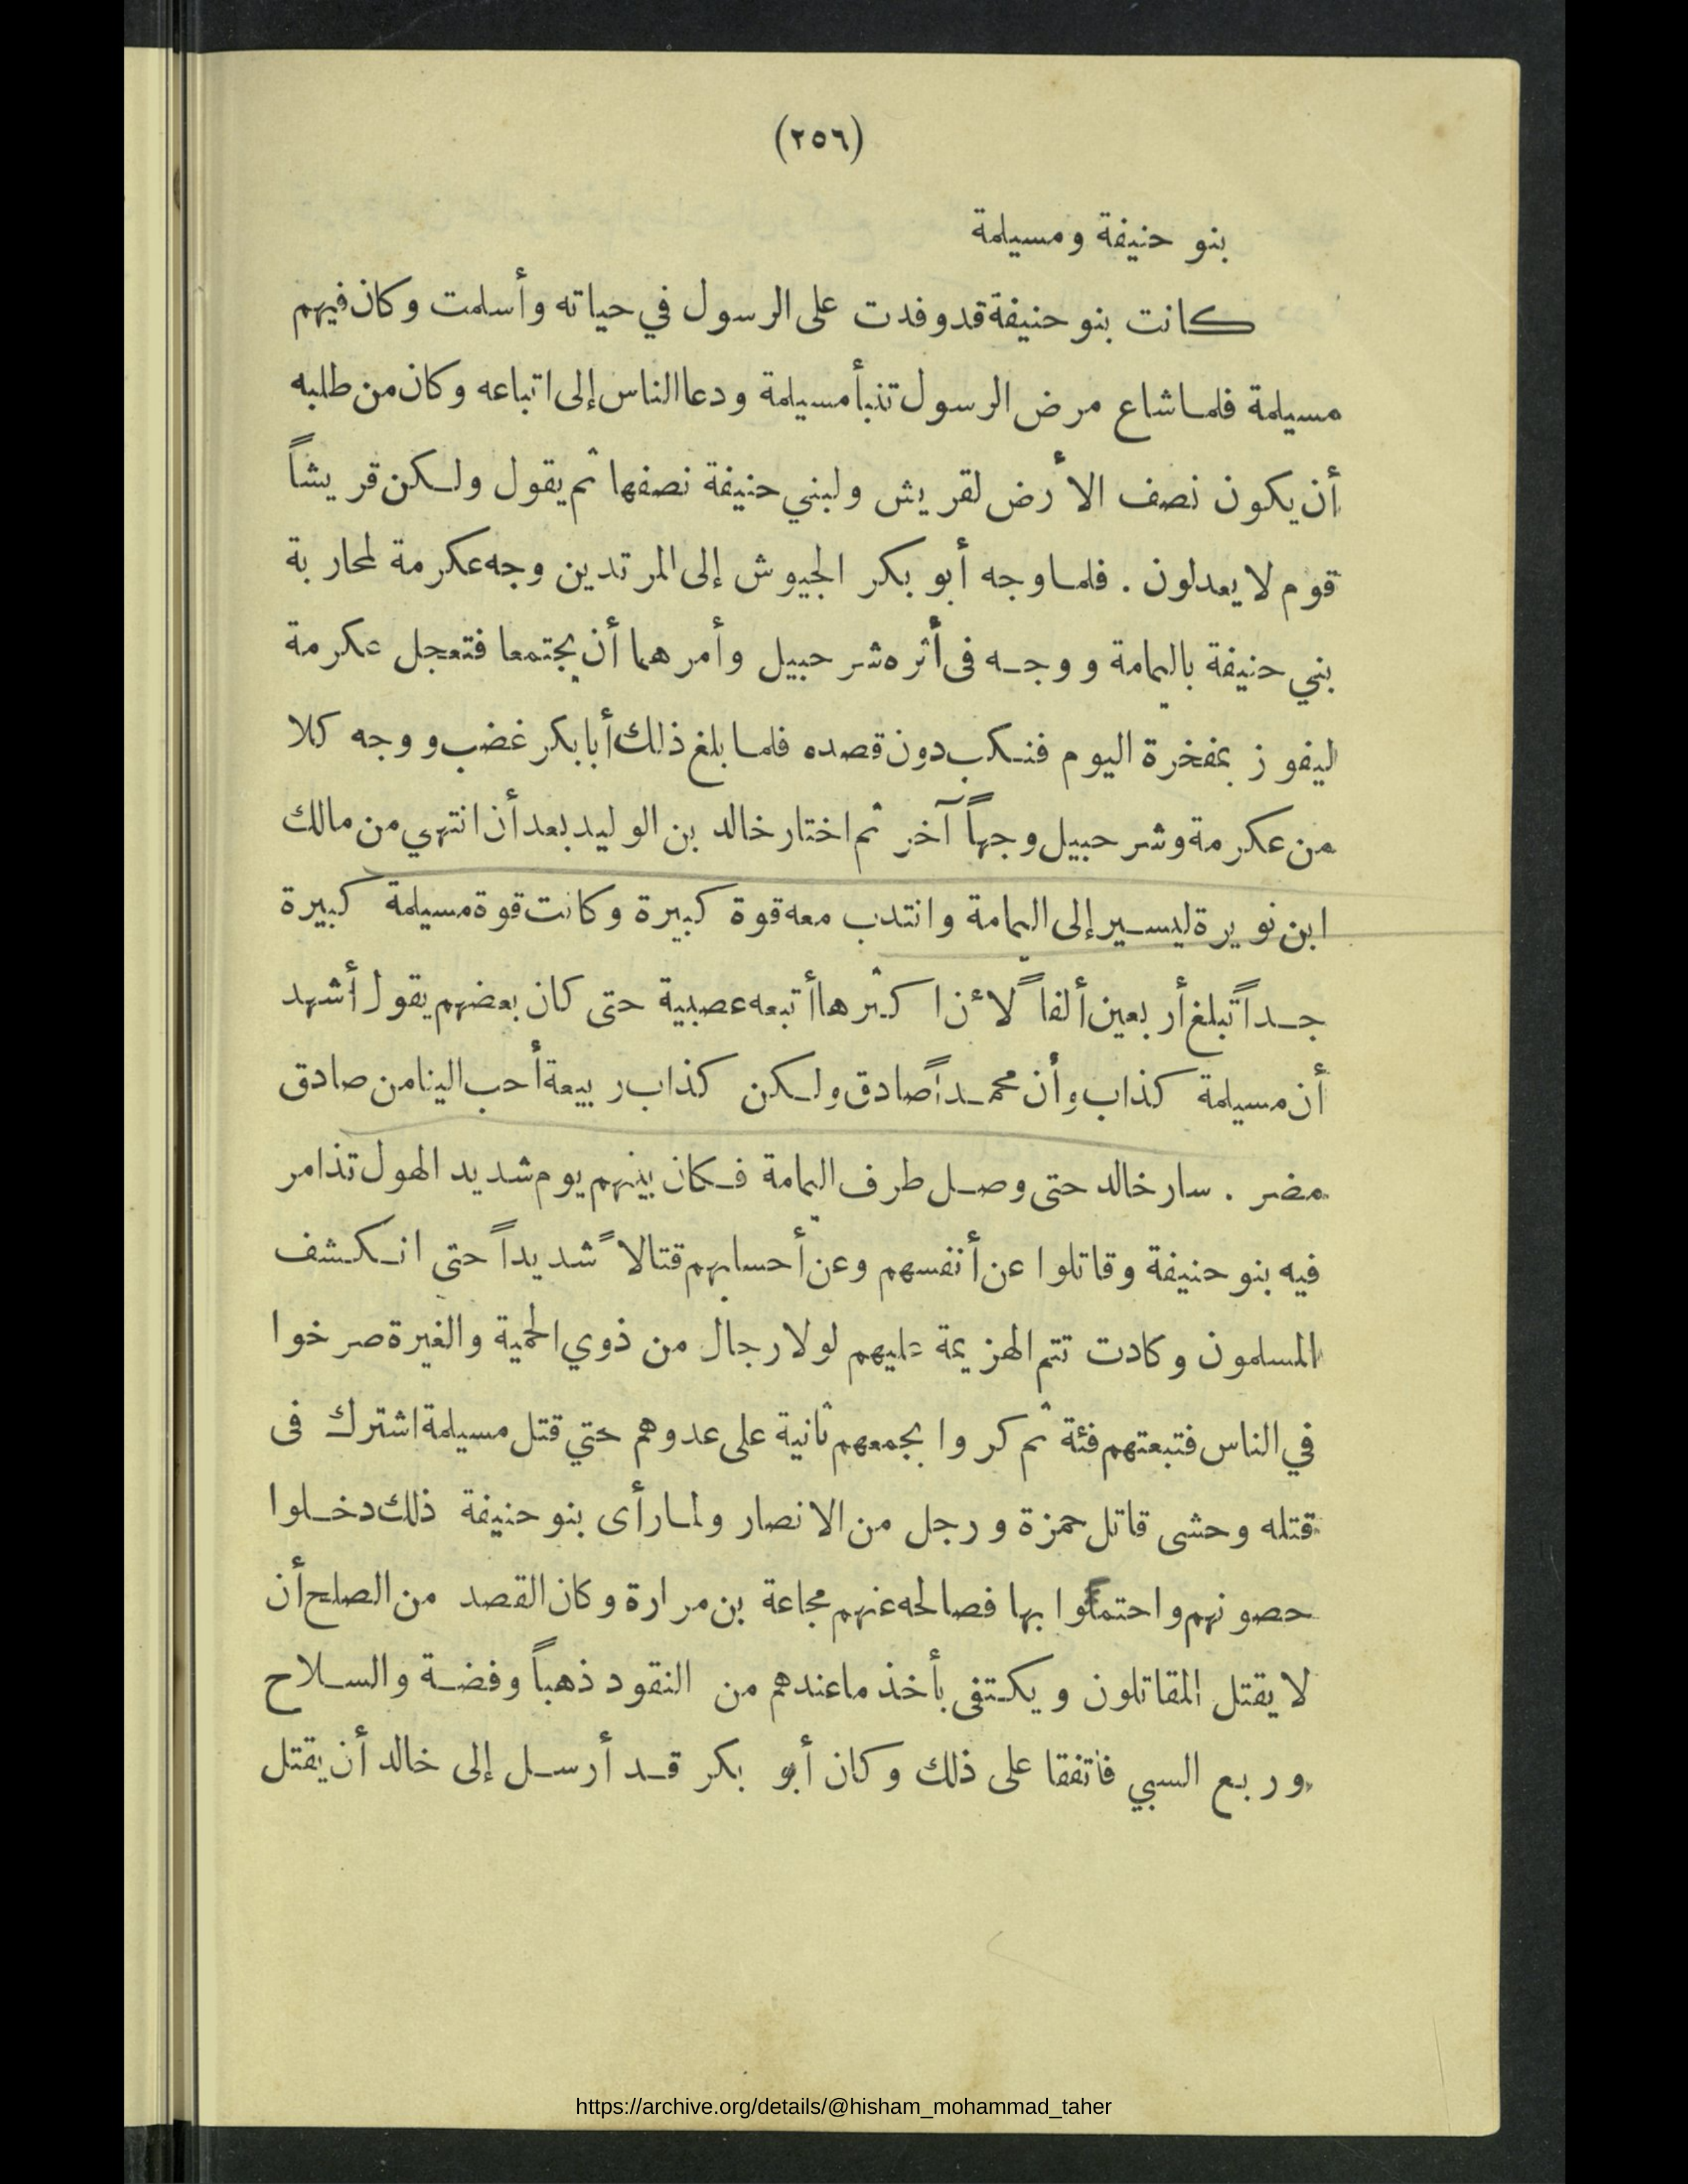 (٢٥٦)
بنو حنيفة ومسيلمة
كانت بنو حنيفة قد وفدت على الرسول في حياته وأسلمت وكان فيهم
مسيلمة فلما شاع مرض الرسول تنبأ مسيلمة ودعا الناس إلى اتباعه وكان من طلبه
أن يكون نصف الأرض لقريش ولبني حنيفة نصفها ثم يقول ولكن قريشاً
قوم لا يعدلون . فلما وجه أبو بكر الجيوش إلى المرتدين وجه عكرمة لمحاربة
بني حنيفة باليمامة ووجه فى أثره شرحبيل وأمرهما أن يجتمعا فتعجل عكرمة
ليفوز بمفخرة اليوم فنكب دون قصده فلما بلغ ذلك أبا بكر غضب ووجه كلا
من عكرمة وشرحبيل وجهاً آخر ثم اختار خالد بن الوليد بعد أن انتهي من مالك
ابن نويرة ليسير إلى اليمامة وانتدب معه قوة كبيرة وكانت قوة مسيلمة كبيرة
جداً تبلغ أربعين ألفاً لأن اكثرها أتبعه عصبية حتى كان بعضهم يقول أشهد
أن مسيلمة كذاب وأن محمداً صادق ولكن كذاب ربيعة أحب الينا من صادق
مضر . سار خالد حتى وصل طرف اليمامة فكان بينهم يوم شديد الهول تذامر
فيه بنو حنيفة وقاتلوا عن أنفسهم وعن أحسابهم قتالاً شديداً حتى انكشف
المسلمون وكادت تتم الهزيمة عليهم لولا رجال من ذوي الحمية والغيرة صرخوا
في الناس فتبعتهم فئة ثم كروا بجمعهم ثانية على عدوهم حتي قتل مسيلمة اشترك فى
قتله وحشى قاتل حمزة ورجل من الانصار ولما رأى بنو حنيفة ذلك دخلوا
حصونهم واحتموا بها فصالحه عنهم مجاعة بن مرارة وكان القصد من الصلح أن
لا يقتل المقاتلون ويكتفى بأخذ ما عندهم من النقود ذهباً وفضة والسلاح
وربع السبي فاتفقا على ذلك وكان أبو بكر قد أرسل إلى خالد أن يقتل
https://archive.org/details/@hisham_mohammad_taher